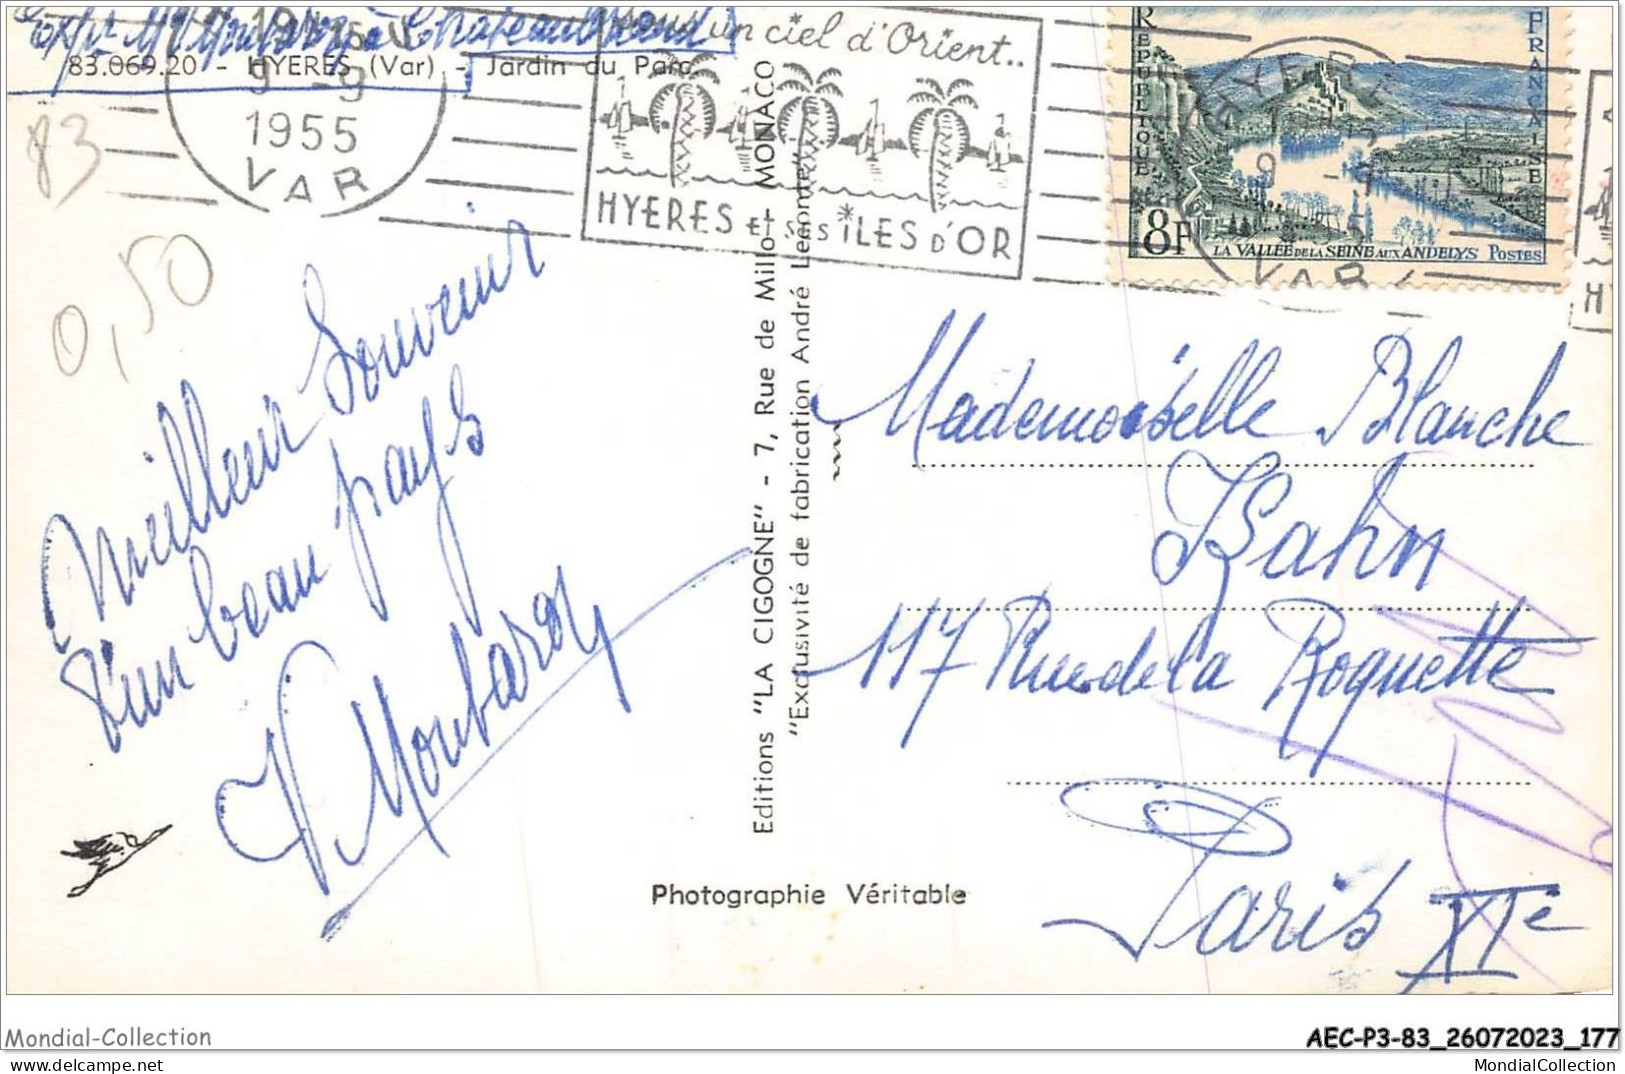 83.069.20 - HYERES (Var) - Jardin du Parc
83
0,50
9 -9
1955
VAR
un ciel d'Orient..
HYERES Et SES ILES D'OR
REPUBLIQUE
FRANCAISE
8F
LA VALLÉE DE LA SEINE AUX ANDELYS POSTES
HYERES
VAR
Meilleur Souvenir
d'un beau pays
V Moubaron
Editions "LA CIGOGNE" - 7, Rue de Millo - MONACO
"Exclusivité de fabrication André Leconte"
Mademoiselle Blanche
Bahn
117 Rue de la Roquette
Paris XIe
Photographie Véritable
Mondial-Collection
AEC-P3-83_26072023_177
MondialCollection